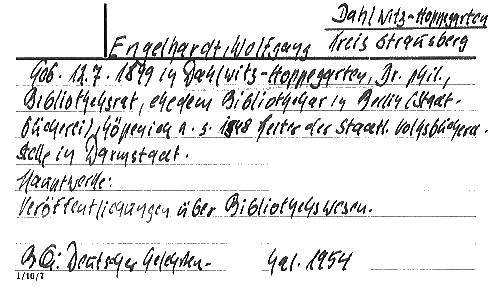 Dahlwitz-Hoppegarten
Engelhardt, Wolfgang Kreis Strausberg
Geb. 12.7. 1899 in Dahlwitz-Hoppegarten, Dr. phil.,
Bibliotheksrat, ehedem Bibliothekar in Berlin (Stadt-
bücherei), Köpenick a. s. 1948 Leiter der Staatl. Volksbücherei-
stelle in Darmstadt.
Hauptwerke:
Veröffentlichungen über Bibliothekswesen.
Deutscher Gelehrten- Kal. 1954
1/10/7